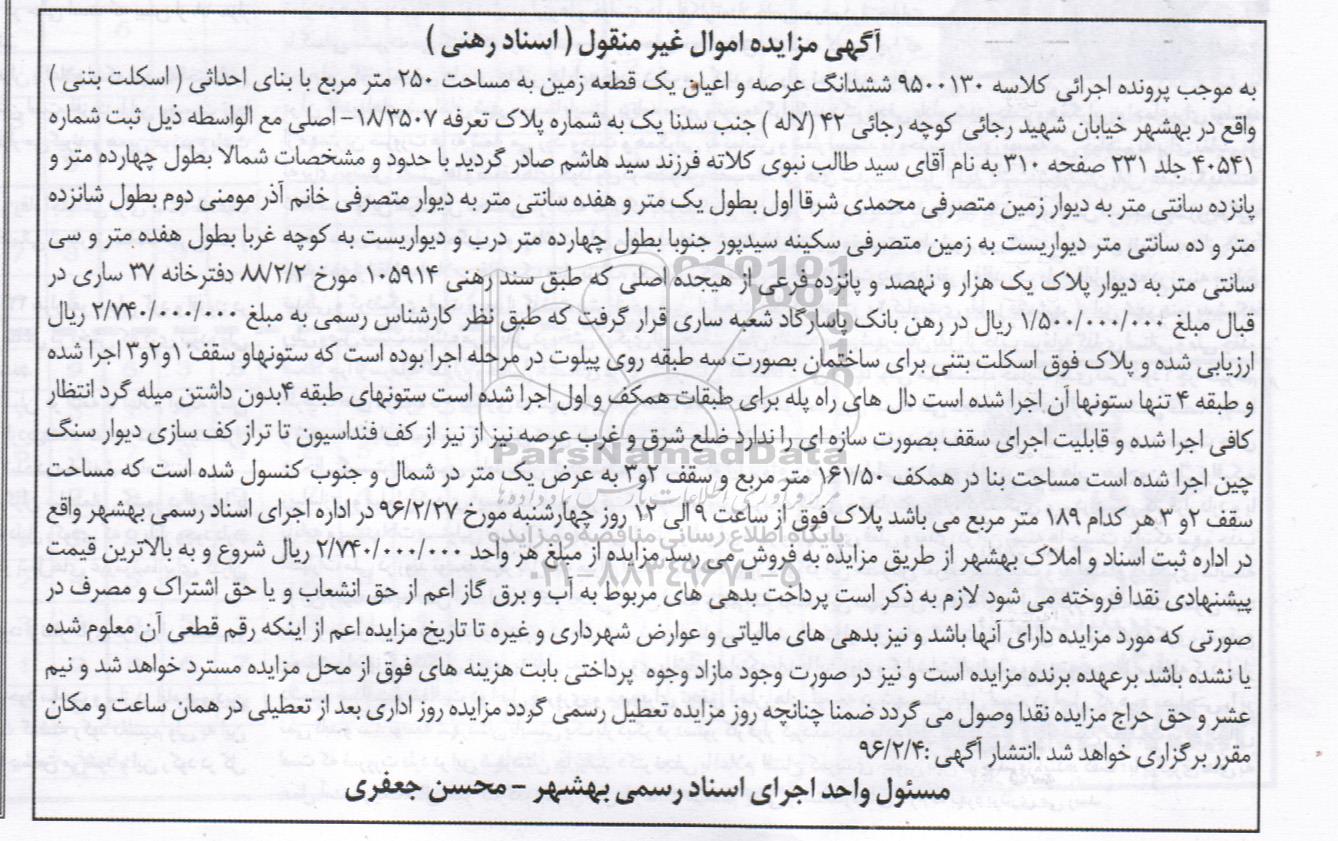 آگهی مزایده اموال غیر منقول ( اسناد رهنی )
به موجب پرونده اجرائی کلاسه ۹۵۰۰۱۳۰ ششدانگ عرصه و اعیان یک قطعه زمین به مساحت ۲۵۰ متر مربع با بنای احداثی ( اسکلت بتنی )
واقع در بهشهر خیابان شهید رجائی کوچه رجائی ۴۲ (لاله ) جنب سدنا یک به شماره پلاک تعرفه ۱۸/۳۵۰۷- اصلی مع الواسطه ذیل ثبت شماره
۴۰۵۴۱ جلد ۲۳۱ صفحه ۳۱۰ به نام آقای سید طالب نبوی کلاته فرزند سید هاشم صادر گردید با حدود و مشخصات شمالا بطول چهارده متر و
پانزده سانتی متر به دیوار زمین متصرفی محمدی شرقا اول بطول یک متر و هفده سانتی متر به دیوار متصرفی خانم آذر مومنی دوم بطول شانزده
متر و ده سانتی متر دیواریست به زمین متصرفی سکینه سیدپور جنوبا بطول چهارده متر درب و دیواریست به کوچه غربا بطول هفده متر و سی
سانتی متر به دیوار پلاک یک هزار و نهصد و پانزده فرعی از هیجده اصلی که طبق سند رهنی ۱۰۵۹۱۴ مورخ ۸۸/۲/۲ دفترخانه ۳۷ ساری در
قبال مبلغ ۱/۵۰۰/۰۰۰/۰۰۰ ریال در رهن بانک پاسارگاد شعبه ساری قرار گرفت که طبق نظر کارشناس رسمی به مبلغ ۲/۷۴۰/۰۰۰/۰۰۰ ریال
ارزیابی شده و پلاک فوق اسکلت بتنی برای ساختمان بصورت سه طبقه روی پیلوت در مرحله اجرا بوده است که ستونهاو سقف ۱و۲و۳ اجرا شده
و طبقه ۴ تنها ستونها آن اجرا شده است دال های راه پله برای طبقات همکف و اول اجرا شده است ستونهای طبقه ۴بدون داشتن میله گرد انتظار
کافی اجرا شده و قابلیت اجرای سقف بصورت سازه ای را ندارد ضلع شرق و غرب عرصه نیز از نیز از کف فنداسیون تا تراز کف سازی دیوار سنگ
چین اجرا شده است مساحت بنا در همکف ۱۶۱/۵۰ متر مربع و سقف ۲و۳ به عرض یک متر در شمال و جنوب کنسول شده است که مساحت
سقف ۲و ۳ هر کدام ۱۸۹ متر مربع می باشد پلاک فوق از ساعت ۹ الی ۱۲ روز چهارشنبه مورخ ۹۶/۲/۲۷ در اداره اجرای اسناد رسمی بهشهر واقع
در اداره ثبت اسناد و املاک بهشهر از طریق مزایده به فروش می رسد مزایده از مبلغ هر واحد ۲/۷۴۰/۰۰۰/۰۰۰ ریال شروع و به بالاترین قیمت
پیشنهادی نقدا فروخته می شود لازم به ذکر است پرداخت بدهی های مربوط به آب و برق گاز اعم از حق انشعاب و یا حق اشتراک و مصرف در
صورتی که مورد مزایده دارای آنها باشد و نیز بدهی های مالیاتی و عوارض شهرداری و غیره تا تاریخ مزایده اعم از اینکه رقم قطعی آن معلوم شده
یا نشده باشد برعهده برنده مزایده است و نیز در صورت وجود مازاد وجوه پرداختی بابت هزینه های فوق از محل مزایده مسترد خواهد شد و نیم
عشر و حق حراج مزایده نقدا وصول می گردد ضمنا چنانچه روز مزایده تعطیل رسمی گردد مزایده روز اداری بعد از تعطیلی در همان ساعت و مکان
مقرر برگزاری خواهد شد .انتشار آگهی :۹۶/۲/۴
مسئول واحد اجرای اسناد رسمی بهشهر - محسن جعفری
ParsNamadData
مرکز فرآوری اطلاعات پارس نماد داده ها
پایگاه اطلاع رسانی مناقصه و مزایده
۰۲۱-۸۸۳۴۹۶۷۰-۵